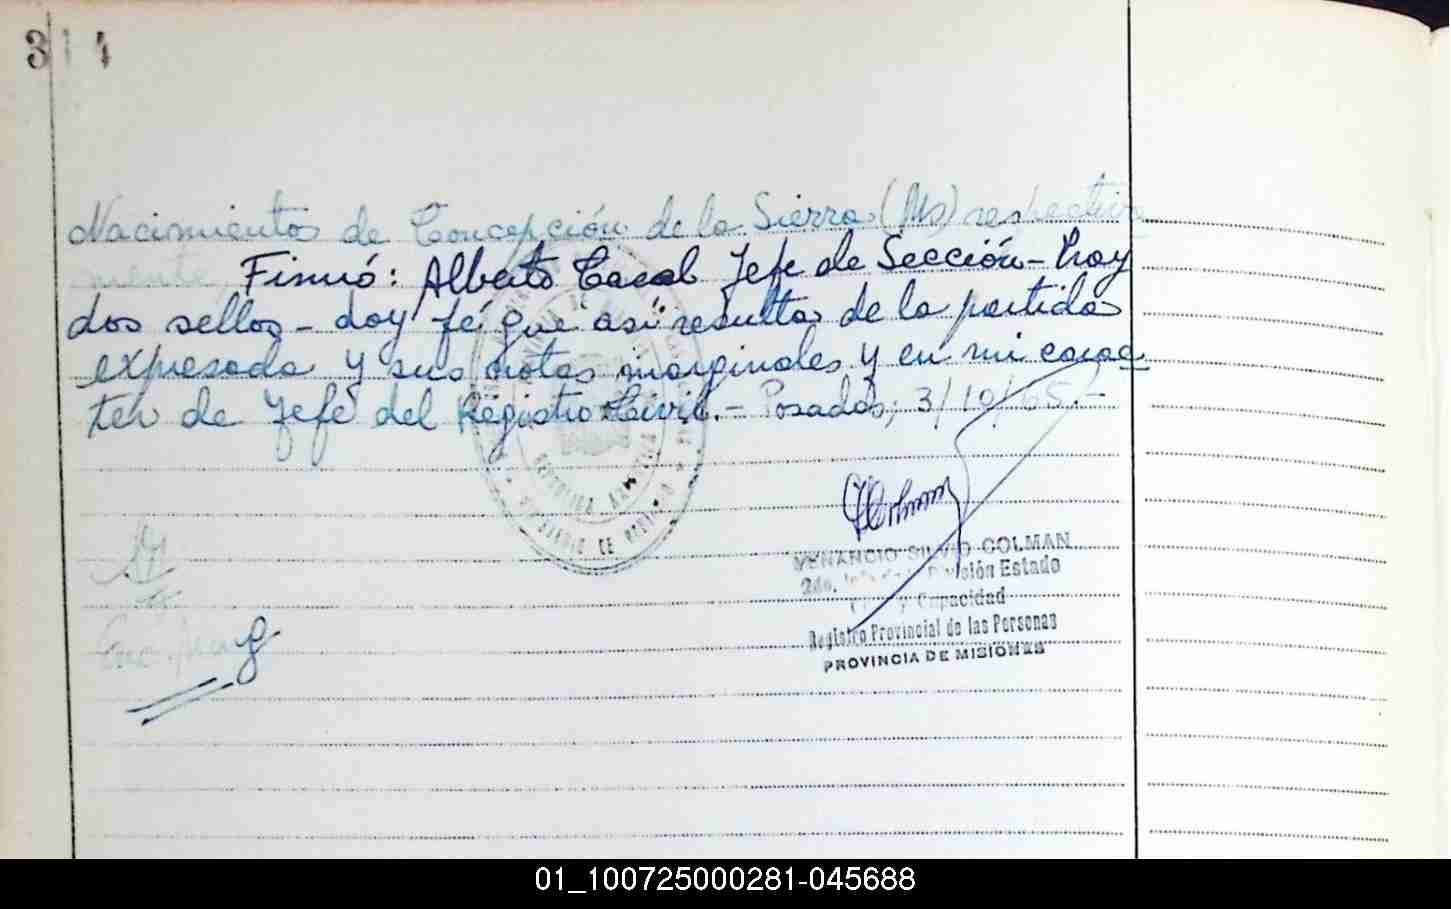 314
Nacimientos de Concepción de la Sierra (Ms) respectiva
mente, Firmó: Alberto Casal Jefe de Sección - Hay
dos sellos - doy fé que así resulta de la partida
expresada y sus notas marginales y en mi carac
ter de Jefe del Registro Civil. - Posadas, 3/10/65.-
REPUBLICA ARGENTINA
VENANCIO SILVIO COLMAN
2do. División Estado
y Capacidad
Registro Provincial de las Personas
PROVINCIA DE MISIONES
01_100725000281-045688